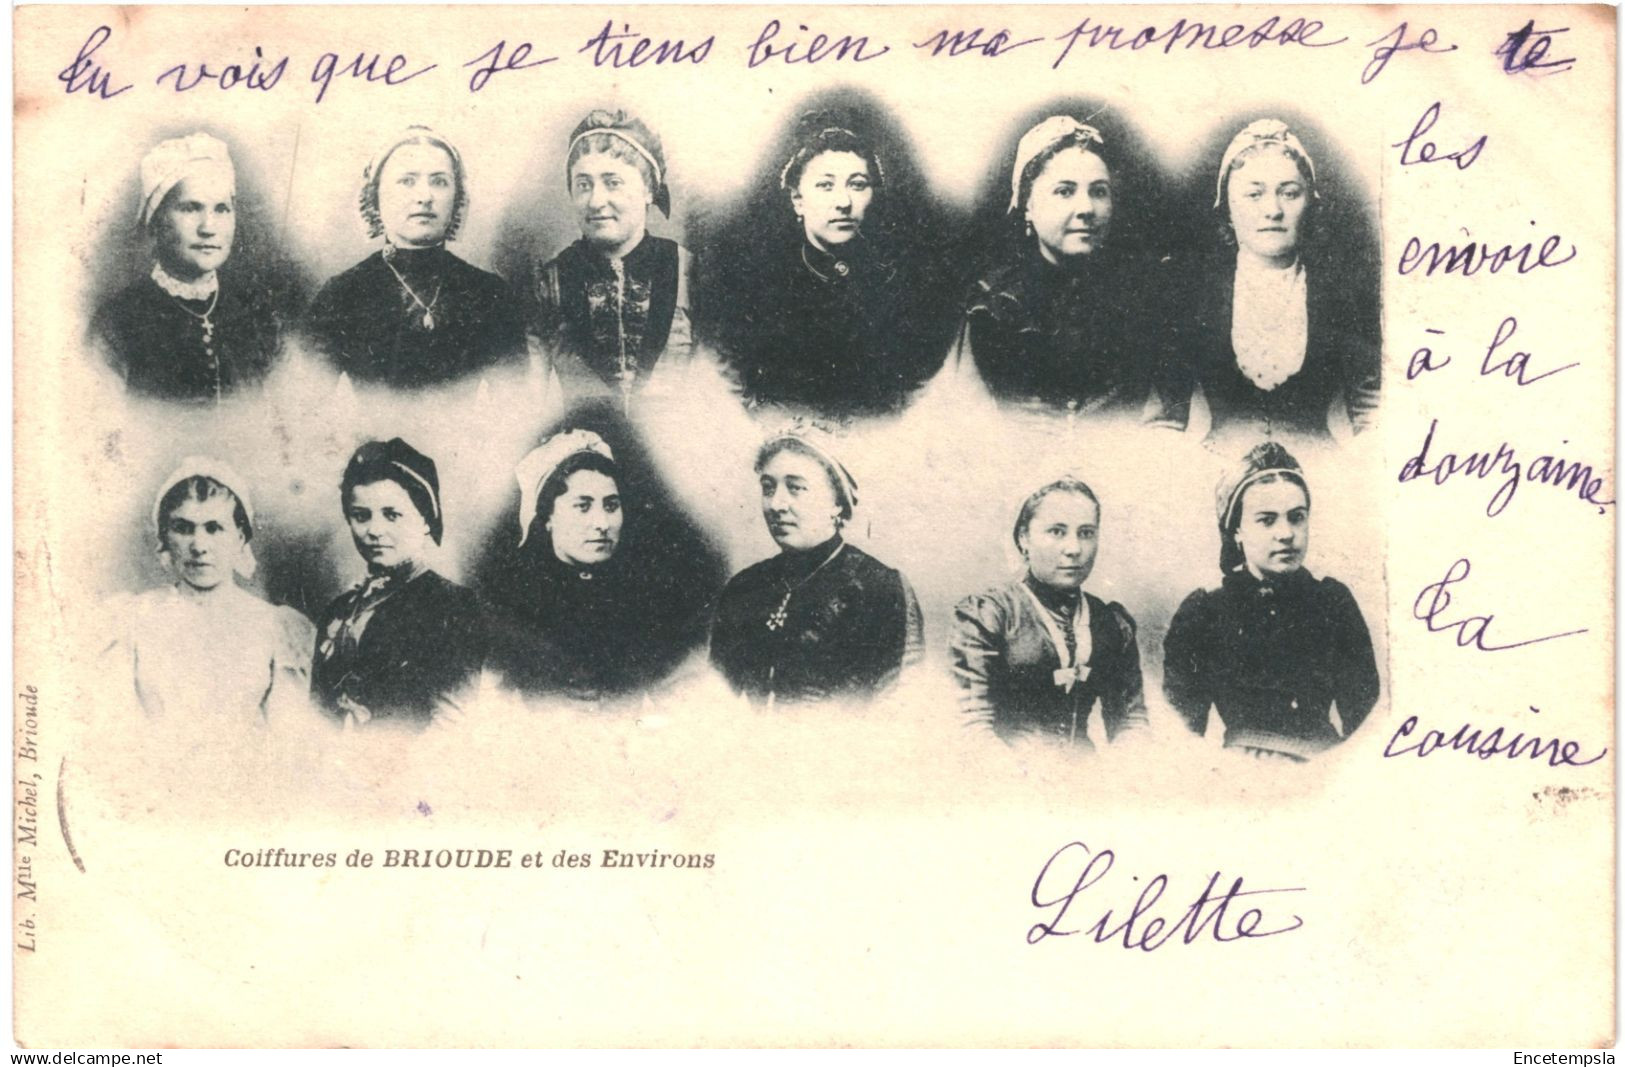 Tu vois que je tiens bien ma promesse je te
les
envoie
à la
douzaine.
Ta
cousine
Lilette
Coiffures de BRIOUDE et des Environs
Lib. Mlle Michel, Brioude
www.delcampe.net
Encetempsla